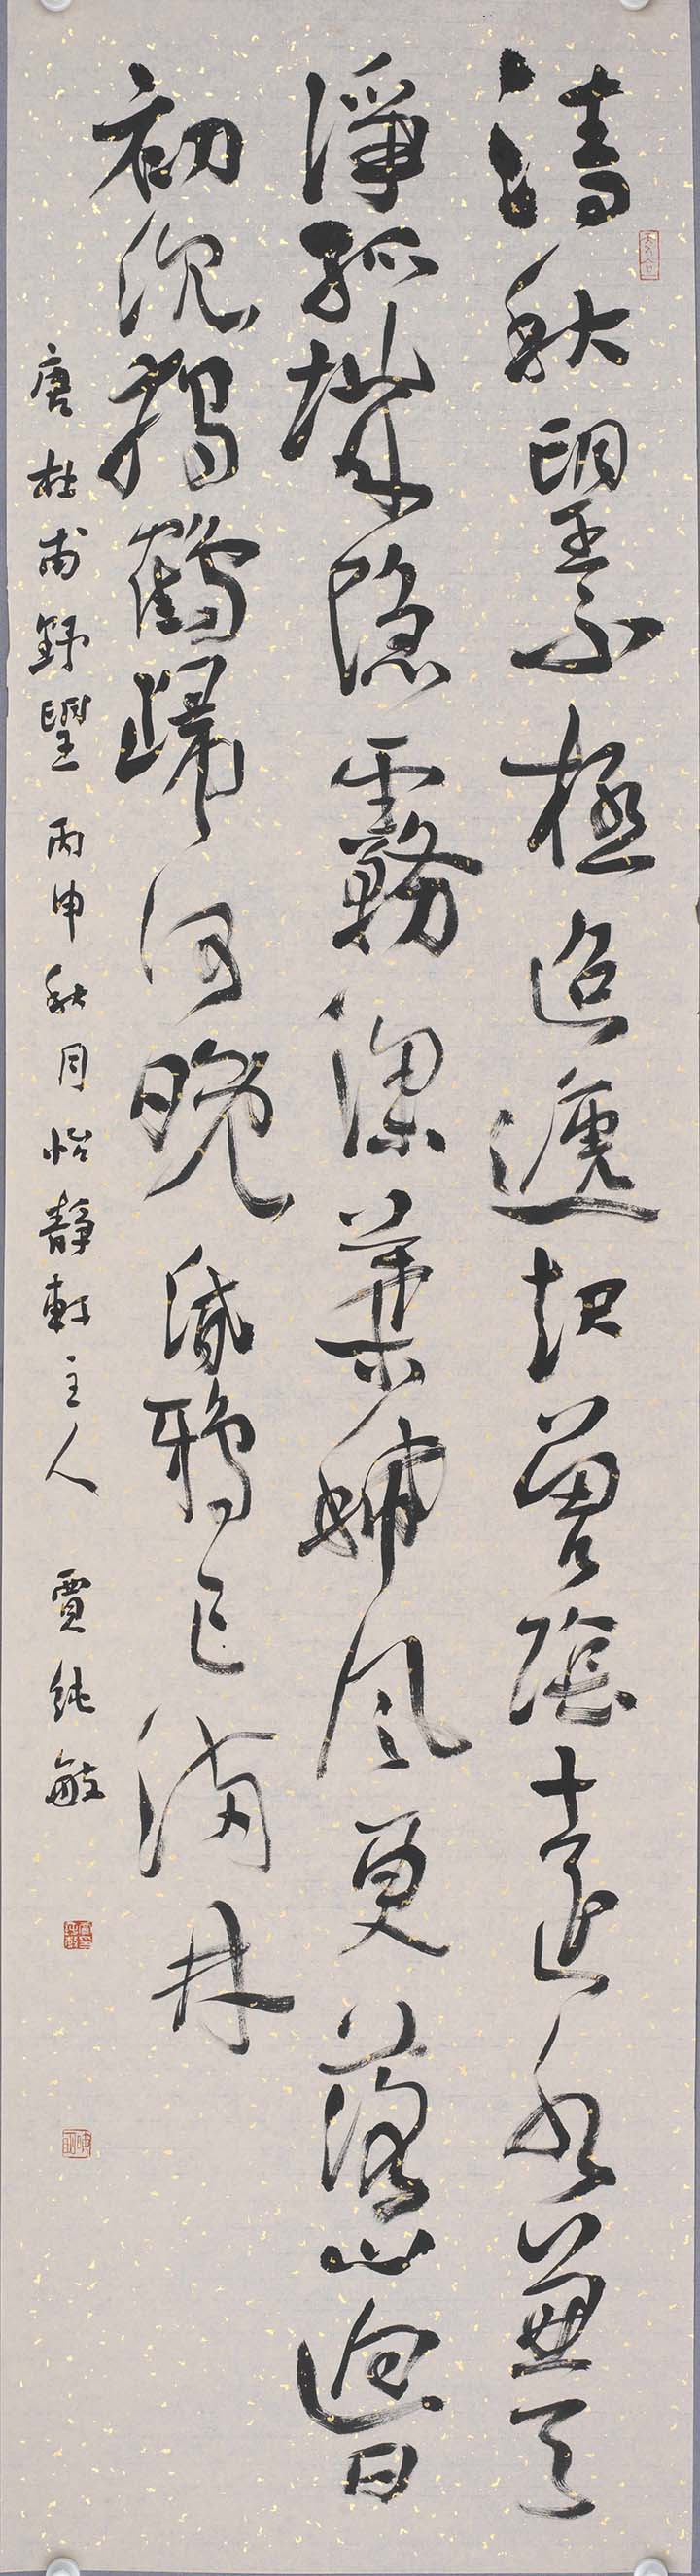 清秋望不極迢遞起曾陰遠水兼天
淨孤城隱霧深葉稀風更落山迥日
初沉獨鶴歸何晚昏鴉已滿林
唐杜甫野望 丙申秋月怡靜軒主人 賈純敏